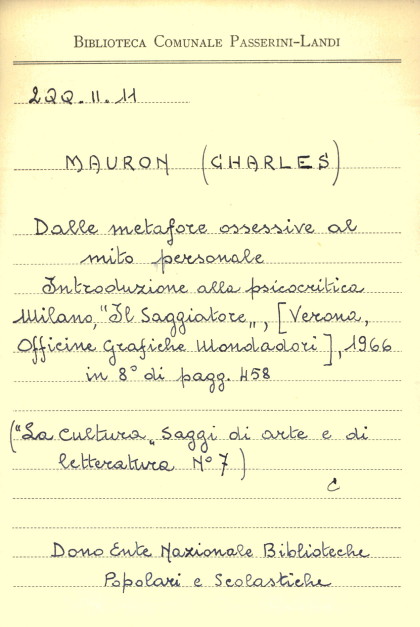 BIBLIOTECA COMUNALE PASSERINI-LANDI
2QQ.II.11
MAURON (CHARLES)
Dalle metafore ossessive al
mito personale
Introduzione alla psicocritica
Milano, "Il Saggiatore", [Verona,
Officine Grafiche Mondadori], 1966
in 8° di pagg. 458
("La Cultura" Saggi di arte e di
letteratura N° 7)
C
Dono Ente Nazionale Biblioteche
Popolari e Scolastiche